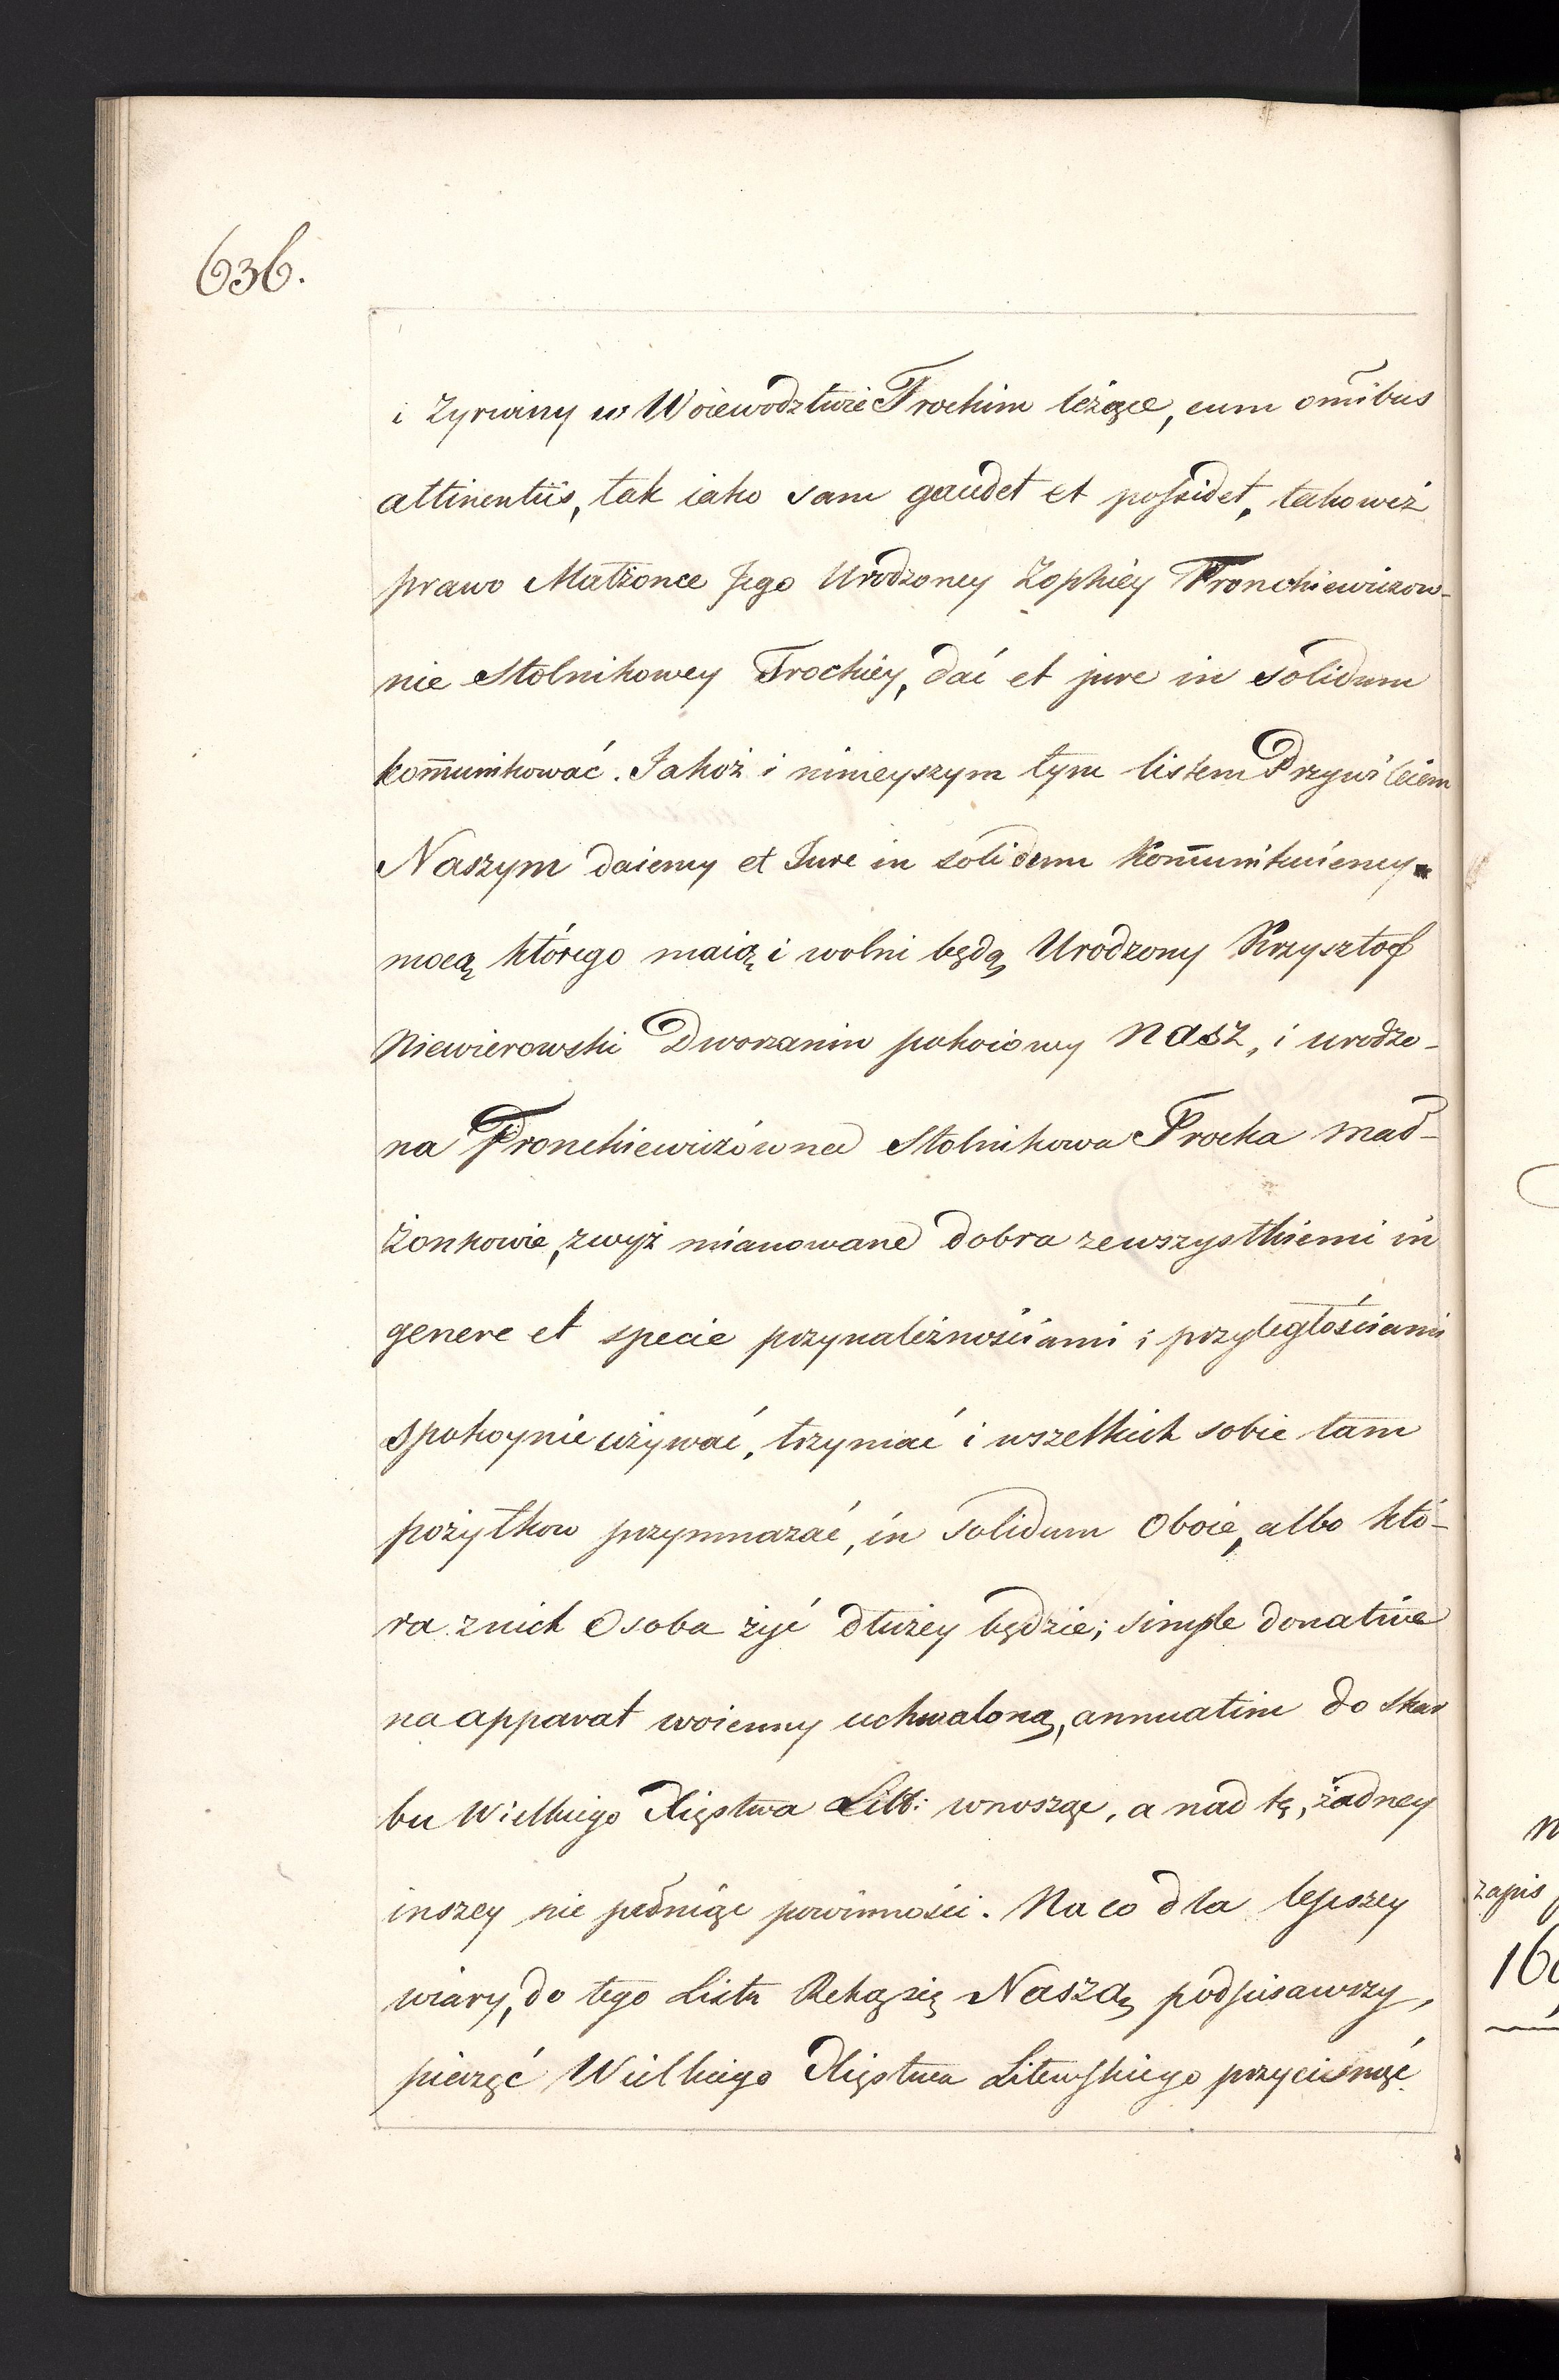 636.
i Zyrwiny w Woiewodztwie Trockim leżące, cum omībus
attinentiis, tak iako sam gaudet et possidet, takoweż
prawo Małżonce Jego Urodzoney Zophiey Fronckiewiczow-
nie Stolnikowey Trockiey, dać et jure in solidum
kom̄unikować. Jakoż i ninieyszym tym listem Przywileiem
Naszym daiemy et Jure in solidum Kom̄unikuiemy
mocą którego maią i wolni będą Urodzony Krzysztof
Niewierowski Dworzanin pokoiowy Nasz, i urodzo-
na Fronckiewiczówna Stolnikowa Trocka mał-
żonkowie, zwyż mianowane dobra zewszystkiemi in
genere et specie przynależnościami i przyległościami
spokoynie używać, trzymać i wszelkich sobie tam
pożytkow przymnażać, in solidum Oboie, albo któ-
ra znich Osoba żyć dłużey będzie; simple donative
na apparat woienny uchwaloną, annuatim do Skar
bu Wielkiego Xięstwa Litt: wnosząc, a nad tę, żadney
inszey nie pełniąc powinności. Na co dla lepszey
wiary, do tego Listu Ręką się Naszą podpisawszy,
pieczęć Wielkiego Xięstwa Litewskiego przycisnąć
zapis